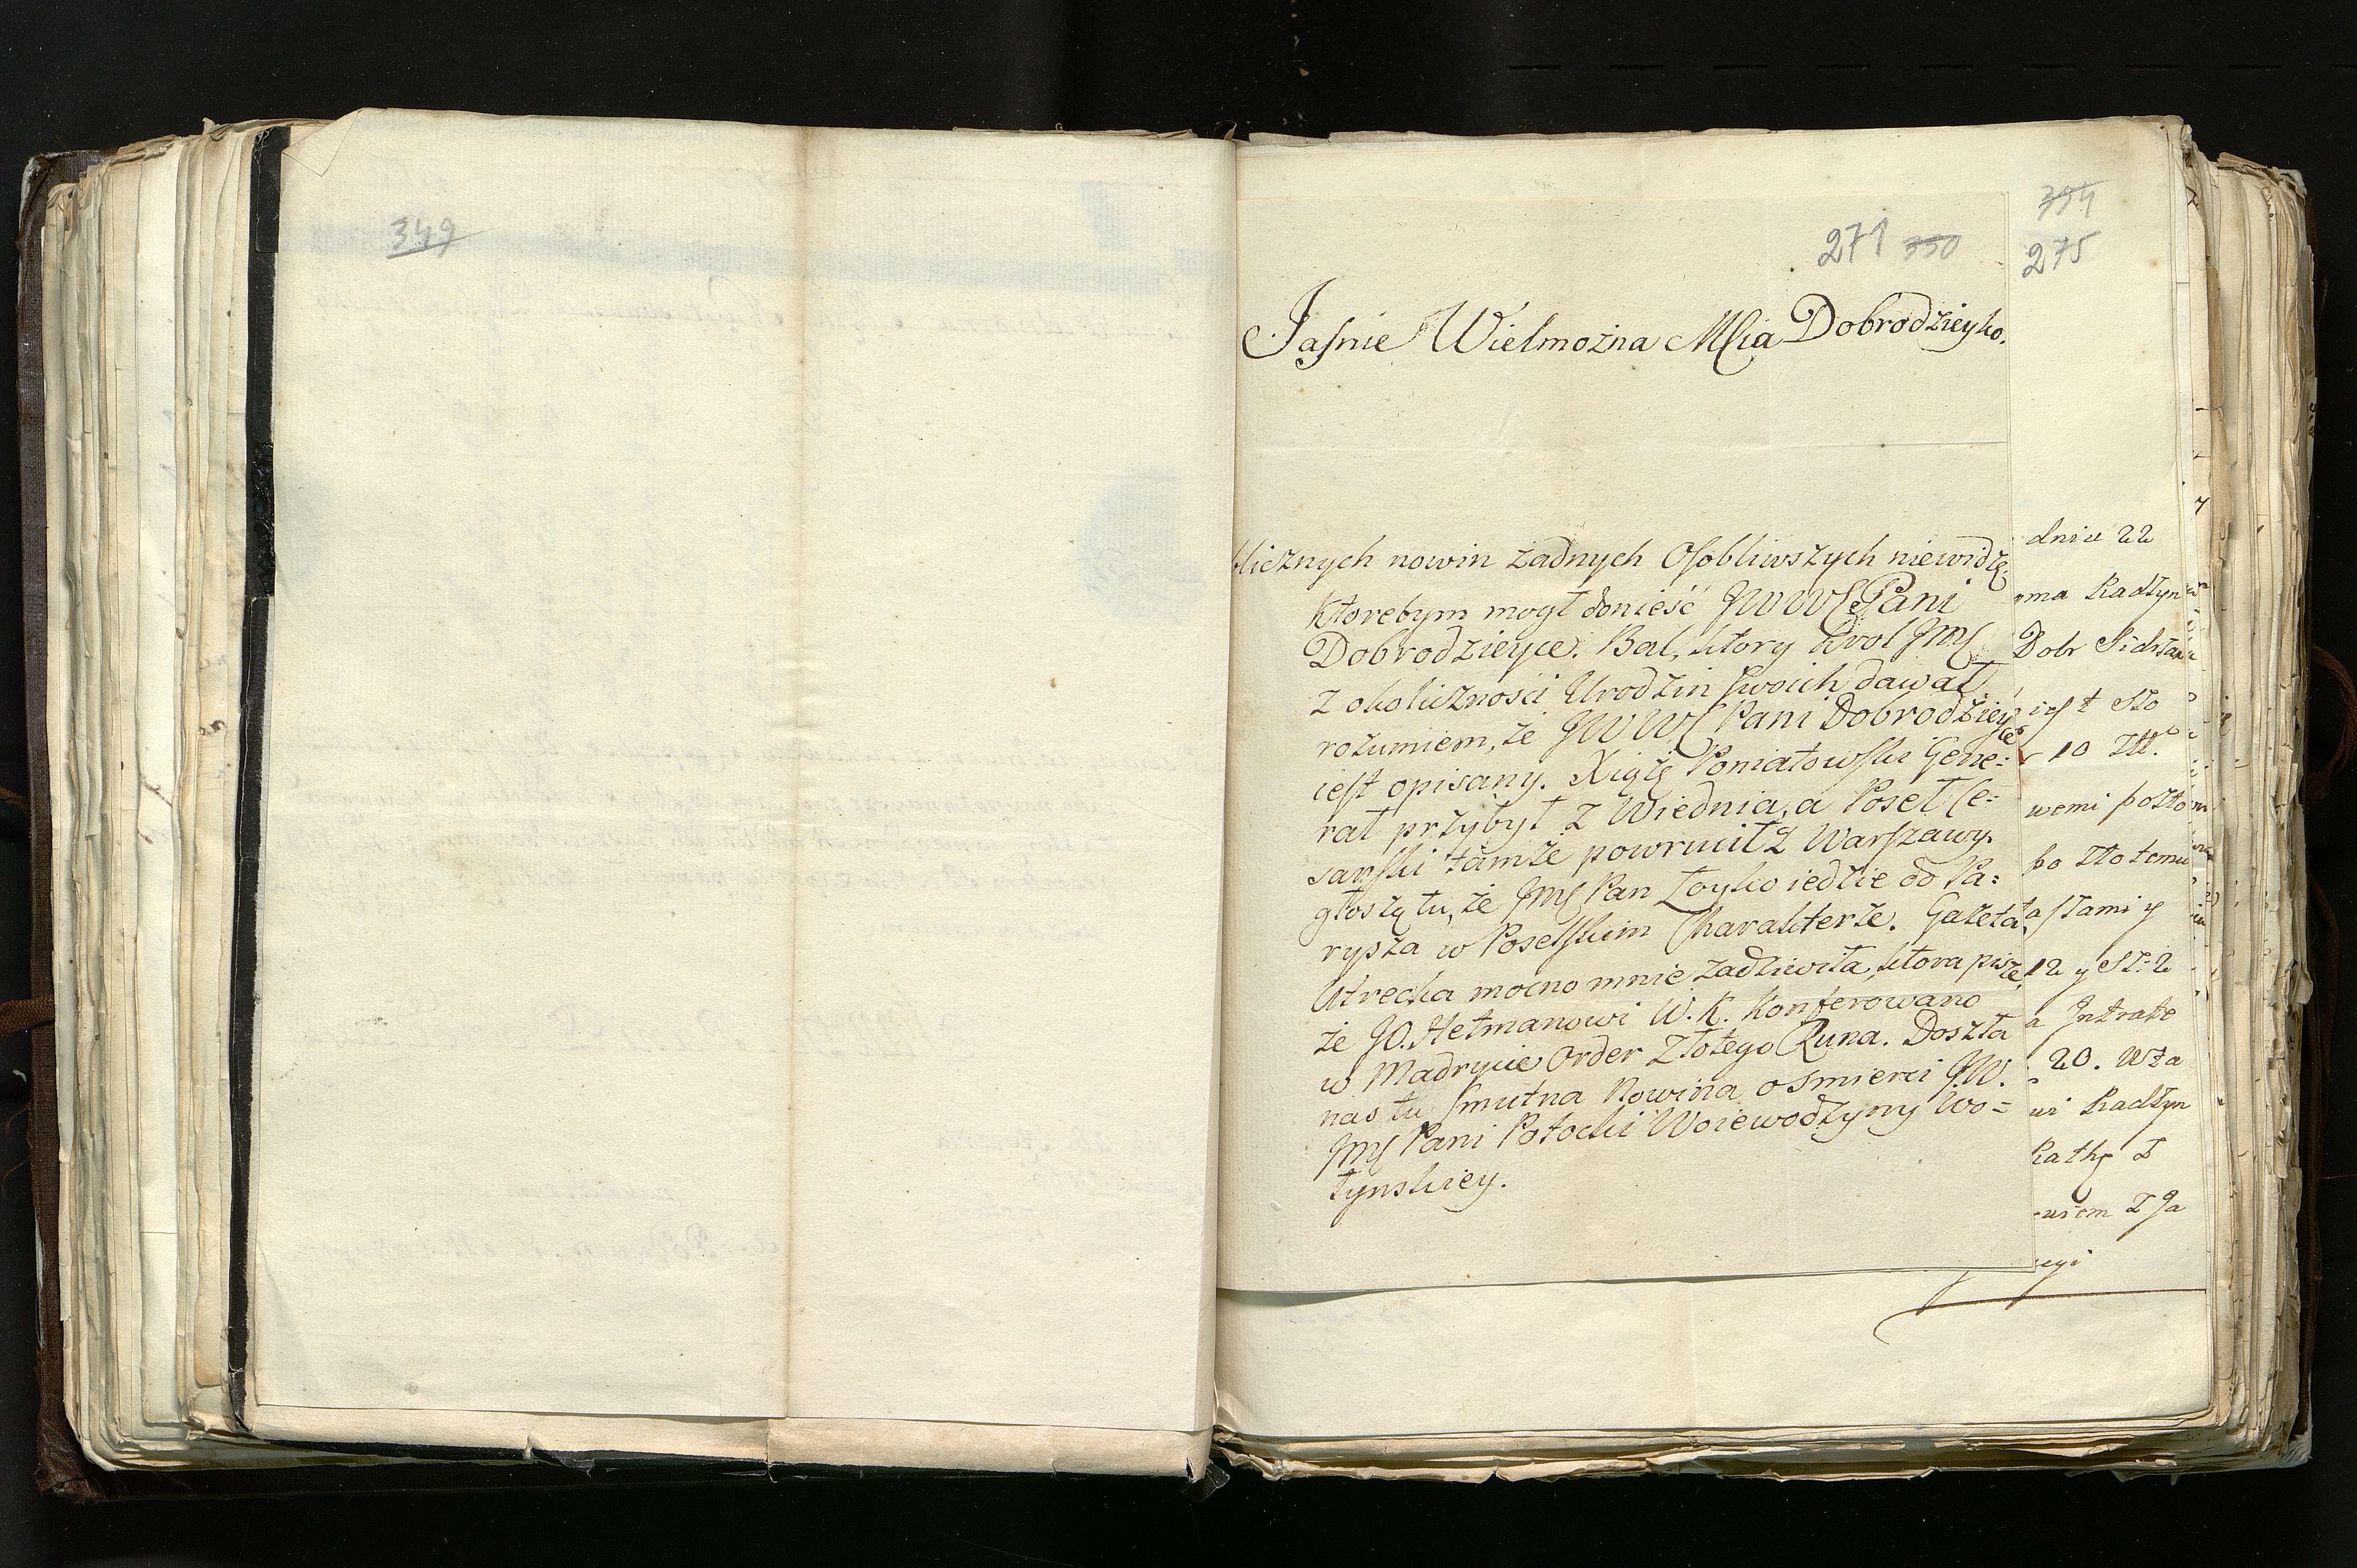 349
271 350
Jaśnie Wielmożna MCia Dobrodzieyko.
blicznych nowin żadnych Osobliwszych niewidzę,
ktorebym mogł donieść JWWC Pani
Dobrodzieyce. Bal, ktory Krol JMC
z okoliczności Urodzin swoich dawał,
rozumiem, że JWWC Pani Dobrodzieyce
iest opisany. Xiążę Poniatowski Gene=
rał przybył z Wiednia, a Poseł Ce=
sarski tamże powrucił z Warszawy.
głoszą tu, że JMC Pan Łoyko iedzie do Pa=
ryża w Poselskim Charakterze. Gazeta
Utrecka mocno mnie zadziwiła, ktora pisze,
że JO. Hetmanowi W. K. konferowano
w Madrycie Order Złotego Runa. Doszła
nas tu smutna Nowina o śmierci JW.
JMC Pani Potocki Woiewodzyny Wo=
łynskiey.
394
275
dniu 22
Radzyn
Dobr
iest sto
10 Zł.
wemi
po złotemu
12 y
20.
Radzyn